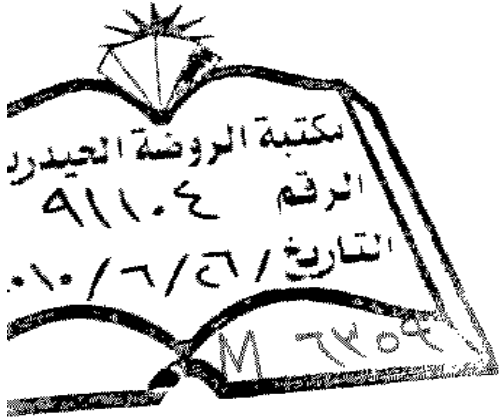 مكتبة الروضة الحيدريـ
الرقم ٩١١٠٤
التاريخ / ٢٦ / ٦ / ٠١٠
M ٦٣٥٩